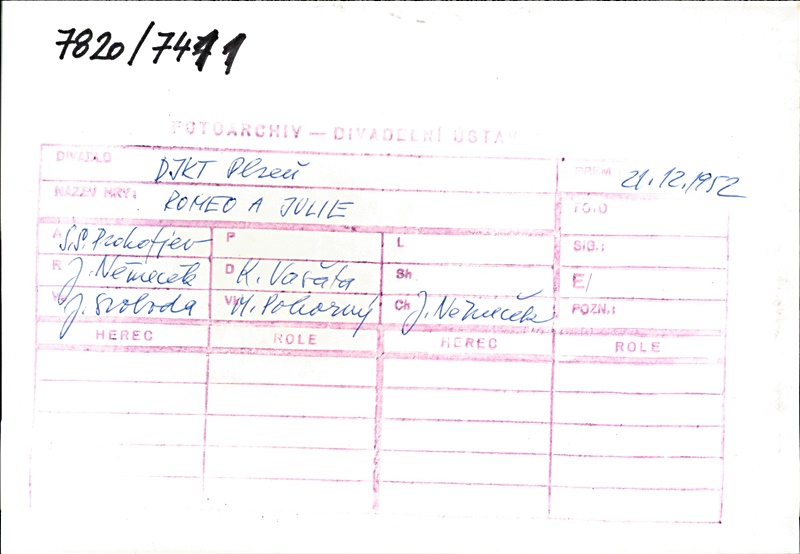 7820/7411
FOTOARCHIV — DIVADELNÍ ÚSTAV
DIVADLO DJKT Plzeň PREM. 21.12.1952
NÁZEV HRY: ROMEO A JULIE FOTO
A S.S. Prokofjev P L SIG.:
R J. Němeček D K. Vašáta Sh E/
V J. Svoboda VK M. Pokorný Ch J. Němeček POZN.:
HEREC ROLE HEREC ROLE